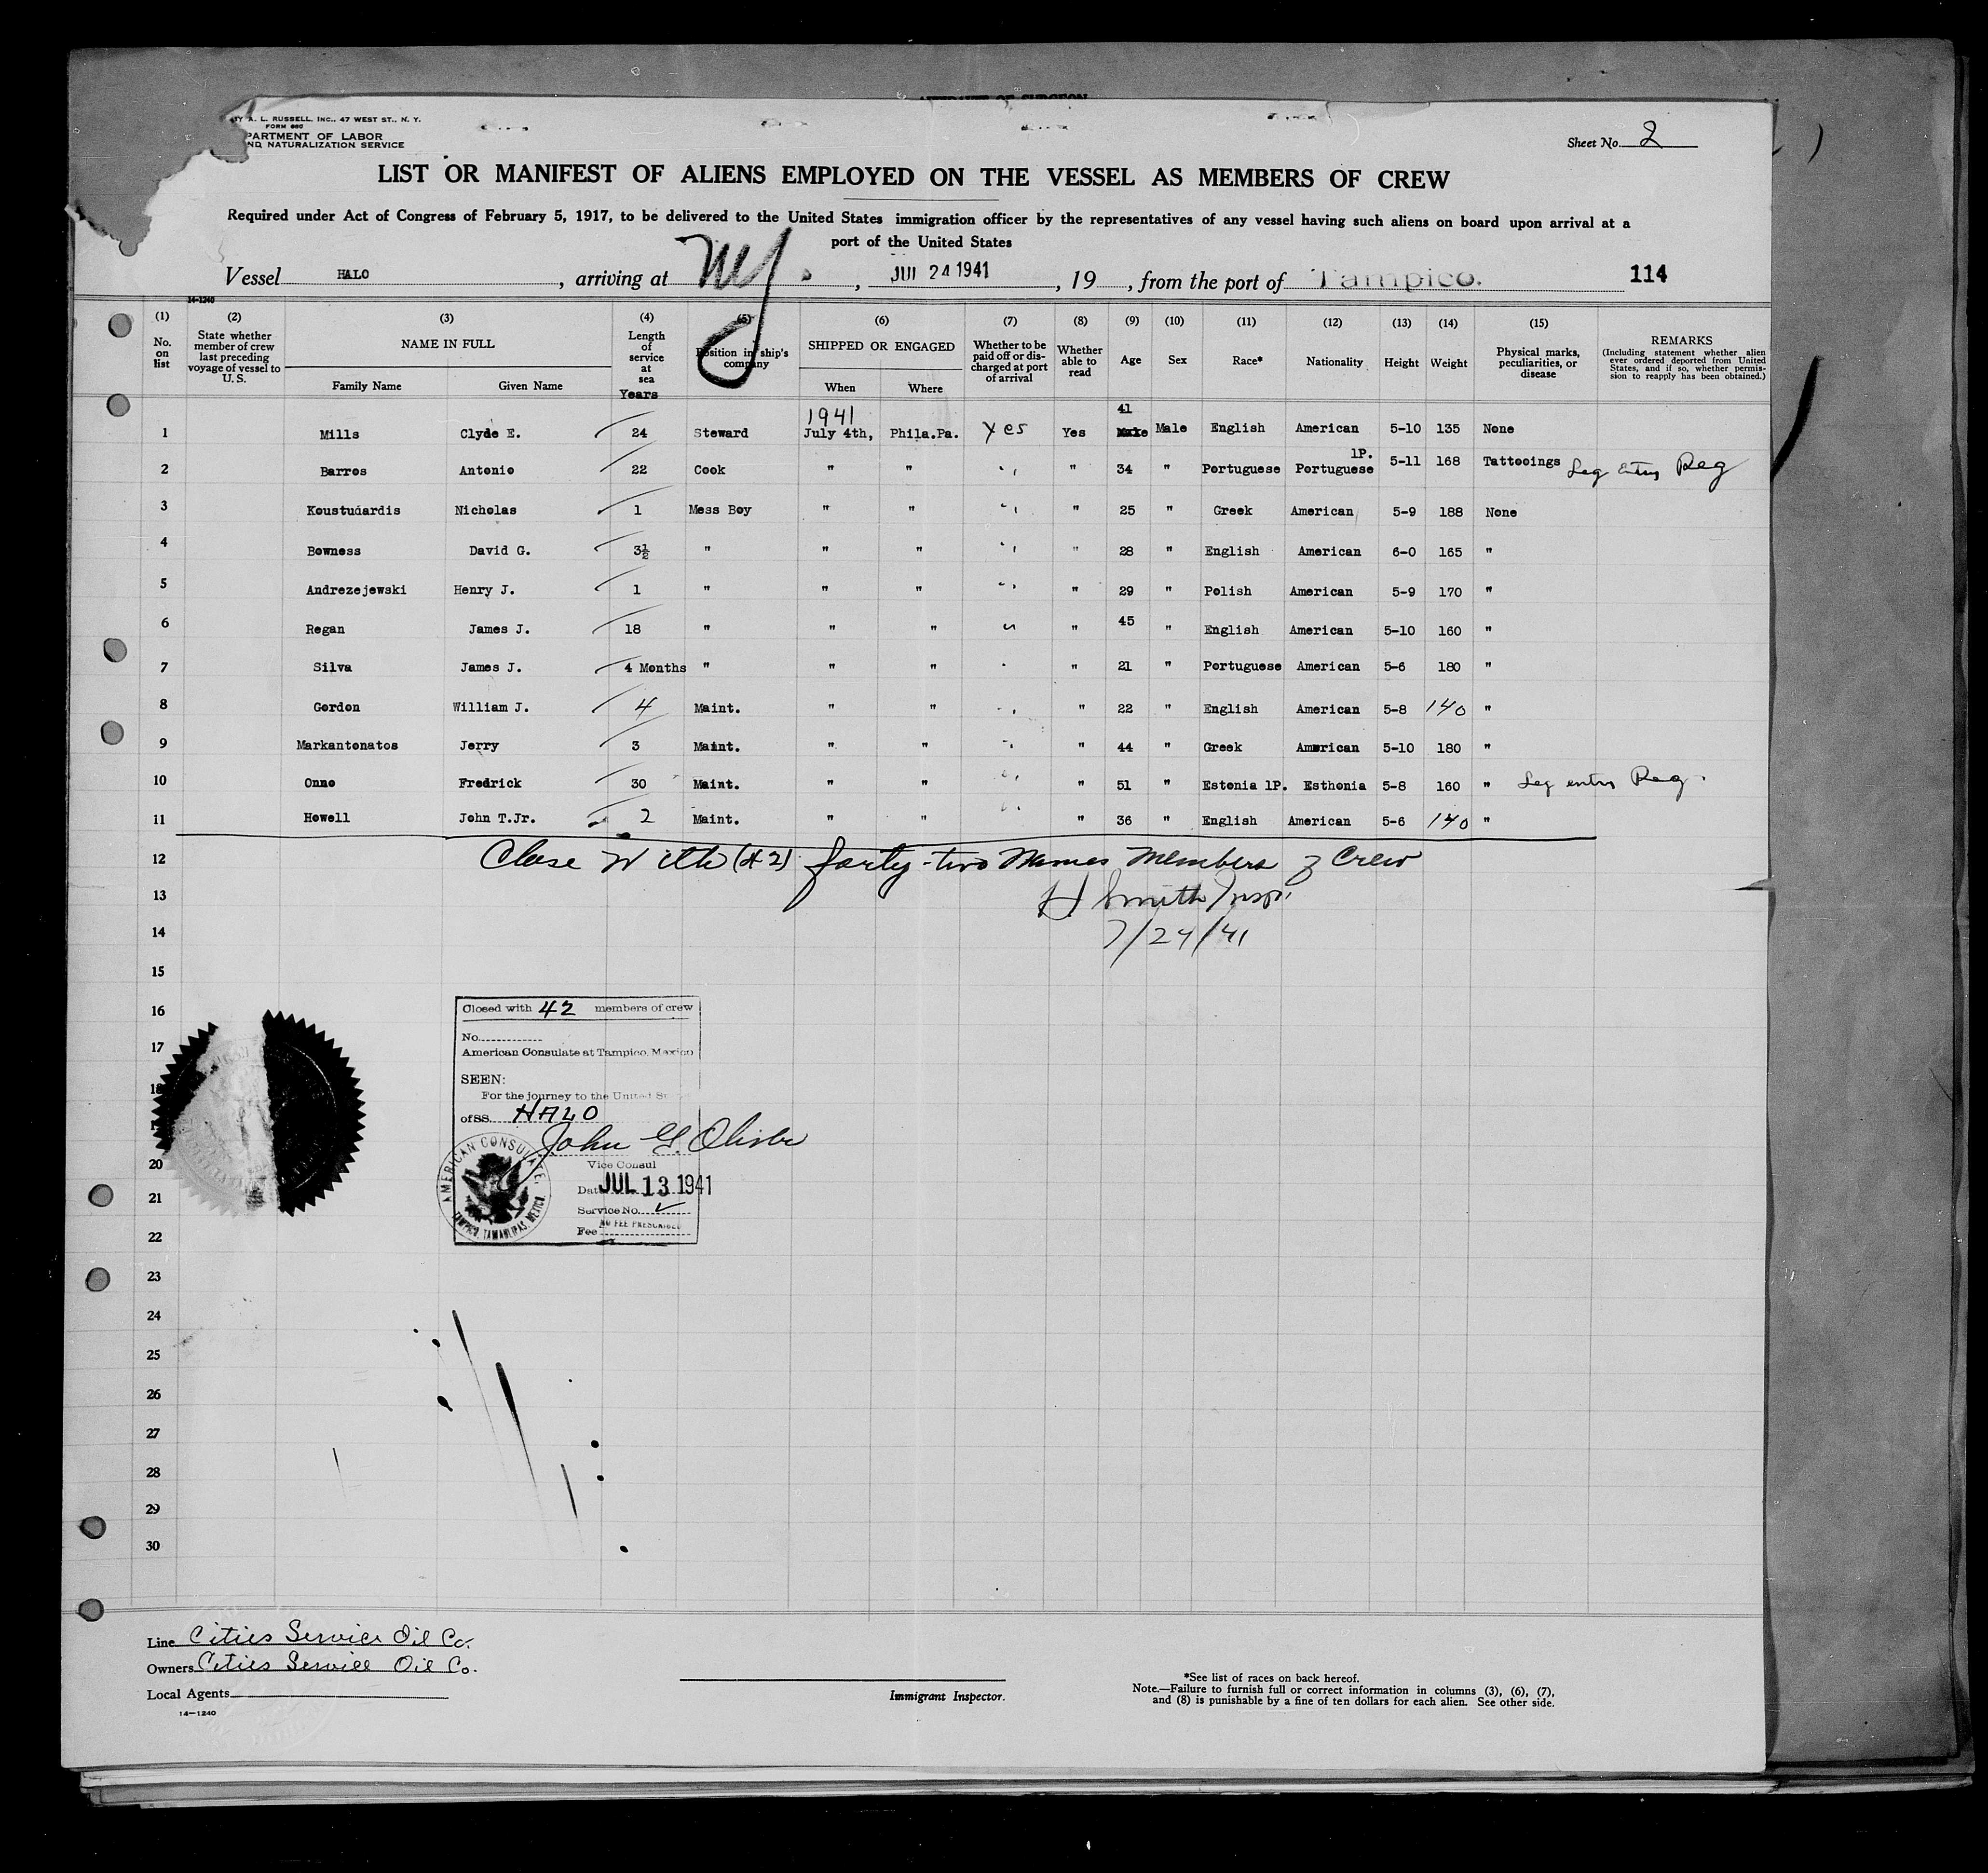 BY A. L. RUSSELL, INC., 47 WEST ST., N. Y.
FORM 680
PARTMENT OF LABOR
ND NATURALIZATION SERVICE
Sheet No. 2
LIST OR MANIFEST OF ALIENS EMPLOYED ON THE VESSEL AS MEMBERS OF CREW
Required under Act of Congress of February 5, 1917, to be delivered to the United States immigration officer by the representatives of any vessel having such aliens on board upon arrival at a
port of the United States
Vessel HALO , arriving at NY , JUL 24 1941 , 19 , from the port of Tampico. 114
14-1240
(1) (2) (3) (4) (5) (6) (7) (8) (9) (10) (11) (12) (13) (14) (15)
No. on list
State whether member of crew last preceding voyage of vessel to U. S.
NAME IN FULL
Family Name Given Name
Length of service at sea
Years
Position in ship's company
SHIPPED OR ENGAGED
When Where
Whether to be paid off or discharged at port of arrival
Whether able to read
Age Sex Race* Nationality Height Weight
Physical marks, peculiarities, or disease
REMARKS
(Including statement whether alien ever ordered deported from United States, and if so, whether permission to reapply has been obtained.)
1941 41
1 Mills Clyde E. 24 Steward July 4th, Phila.Pa. Yes Yes Male English American 5-10 135 None
2 Barros Antonio 22 Cook " " " " 34 " Portuguese 1P. Portuguese 5-11 168 Tattooings Leg entry Reg
3 Koustudardis Nicholas 1 Mess Boy " " " " 25 " Greek American 5-9 188 None
4 Bowness David G. 3½ " " " " " 28 " English American 6-0 165 "
5 Andrezejewski Henry J. 1 " " " " " 29 " Polish American 5-9 170 "
6 Regan James J. 18 " " " " " 45 " English American 5-10 160 "
7 Silva James J. 4 Months " " " " " 21 " Portuguese American 5-6 180 "
8 Gordon William J. 4 Maint. " " " " 22 " English American 5-8 140 "
9 Markantonatos Jerry 3 Maint. " " " " 44 " Greek American 5-10 180 "
10 Onno Fredrick 30 Maint. " " " " 51 " Estonia 1P. Esthonia 5-8 160 " Leg entry Reg.
11 Howell John T.Jr. 2 Maint. " " " " 36 " English American 5-6 140 "
12 Close With (42) forty-two Names Members of Crew
13 H Smith Insp.
14 7/24/41
15
16
17
18
19
20
21
22
23
24
25
26
27
28
29
30
Closed with 42 members of crew
No.
American Consulate at Tampico, Mexico
SEEN:
For the journey to the United St
of SS. HALO
John G. Oliver
Vice Consul
Date JUL 13 1941
Service No.
Fee NO FEE PRESCRIBED
AMERICAN CONSULATE, TAMPICO, TAMAULIPAS, MEXICO.
Line Cities Service Oil Co.
Owners Cities Service Oil Co.
Local Agents
14—1240
Immigrant Inspector.
*See list of races on back hereof.
Note.—Failure to furnish full or correct information in columns (3), (6), (7),
and (8) is punishable by a fine of ten dollars for each alien. See other side.